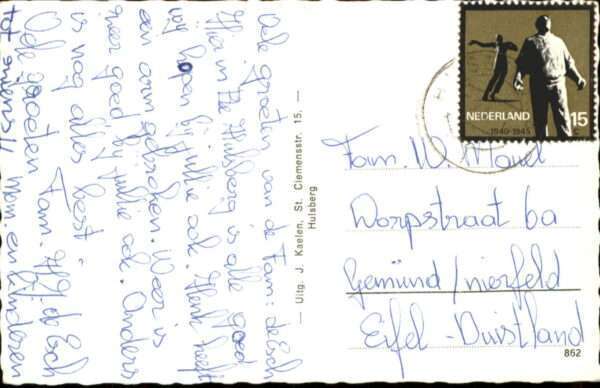 Vele groeten van de Fam: de Esch
Hier in De Hulsberg is alle goed
wij hopen bij jullie ook. Henk heeft
een arm gebroken. Weer is
hier goed bij jullie ook. Anders
is nog alles best
Fam: de Esch
Vele groeten
tot ziens!! Mam. en kinderen
— Uitg. J. Kaelen, St. Clemensstr. 15. —
Hulsberg
NEDERLAND
15 c
1940-1945
Fam. W.
Dorpstraat 6a
Gemünd/nierfeld
Eifel - Duistland
862